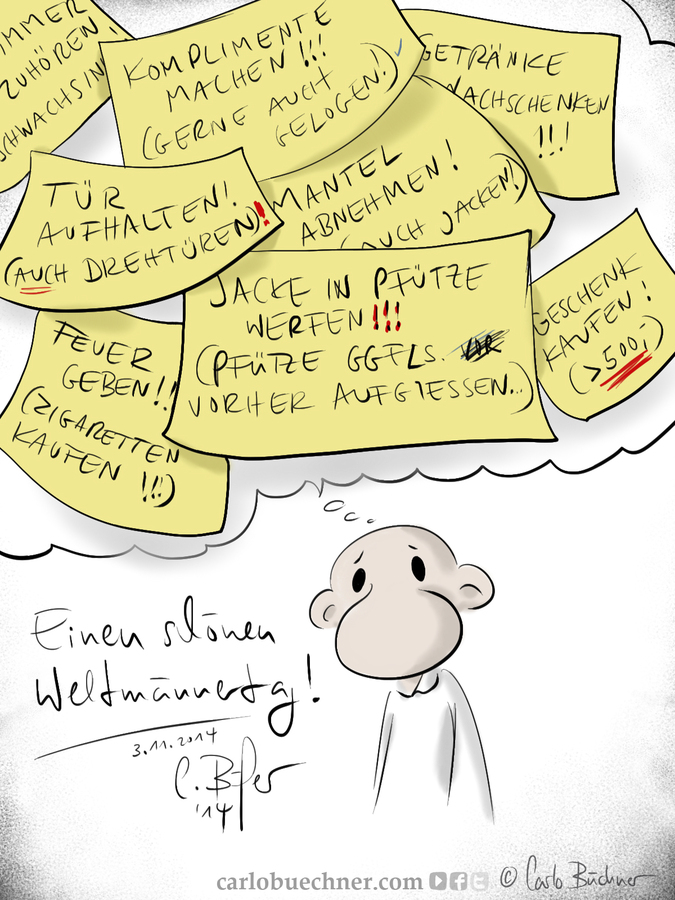 IMMER
ZUHÖREN
SCHWACHSIN
KOMPLIMENTE
MACHEN!!!
(GERNE AUCH
GELOGEN!)
GETRÄNKE
NACHSCHENKEN
!!!
TÜR
AUFHALTEN!
(AUCH DREHTÜREN)!
MANTEL
ABNEHMEN!
(AUCH JACKEN!)
JACKE IN PFÜTZE
WERFEN!!!
(PFÜTZE GGFLS.
VORHER AUFGIESSEN...)
GESCHENK
KAUFEN!
(>500,-)
FEUER
GEBEN!!
(ZIGARETTEN
KAUFEN!!!)
Einen schönen
Weltmännertag!
3.11.2014
'14
carlobuechner.com © Carlo Büchner